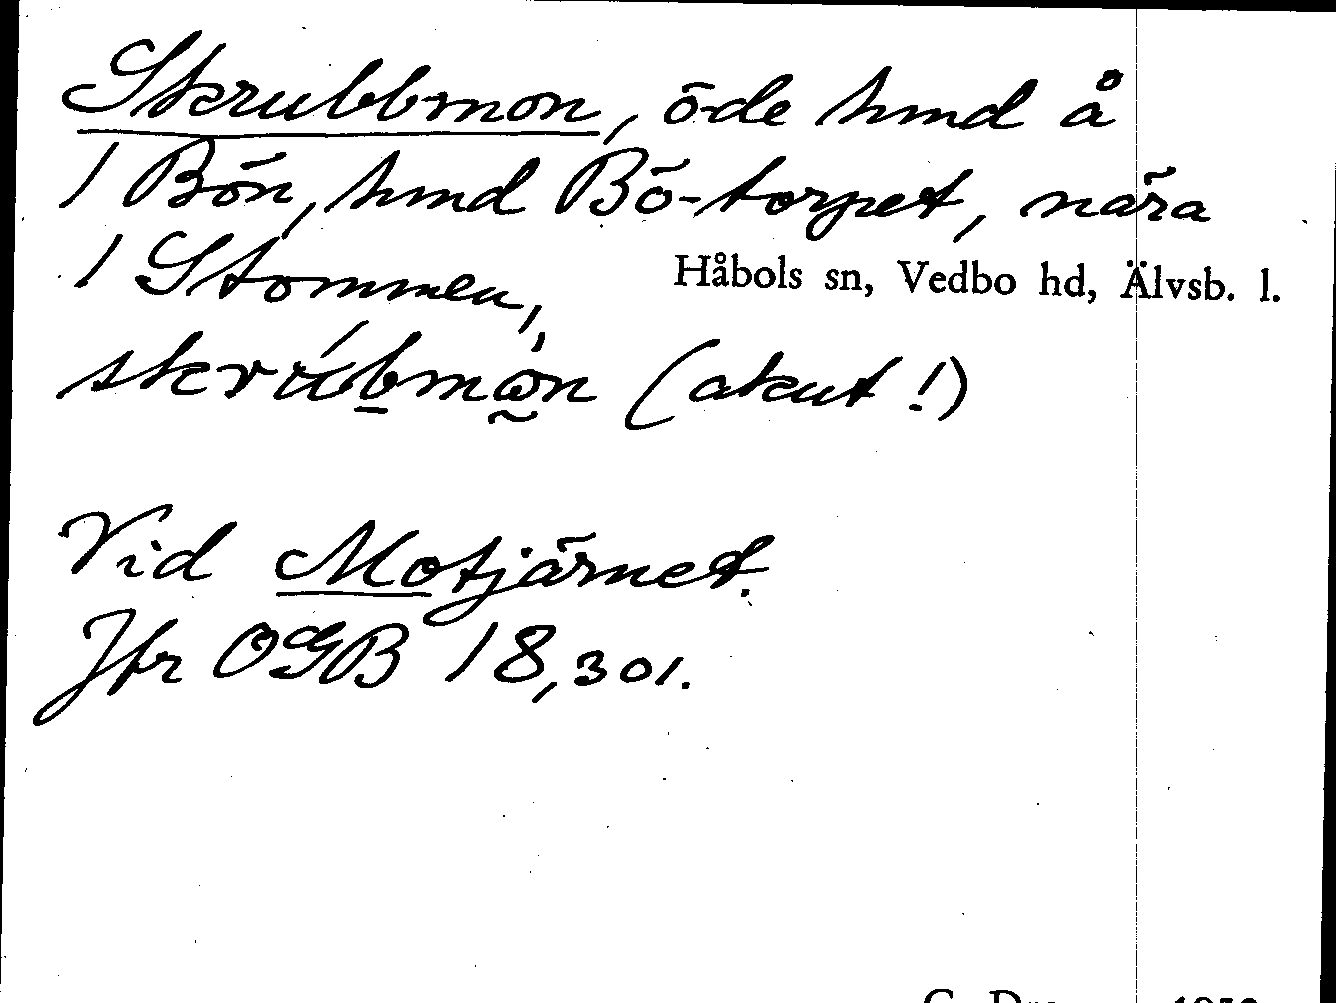 Skrubbmon, öde hmd å
1 Bön, hmd Bö-torpet, nära
1 Stommen,
Håbols sn, Vedbo hd, Älvsb. l.
skrúbmȯn (akut!)
Vid Motjärnet.
Jfr OGB 18,301.